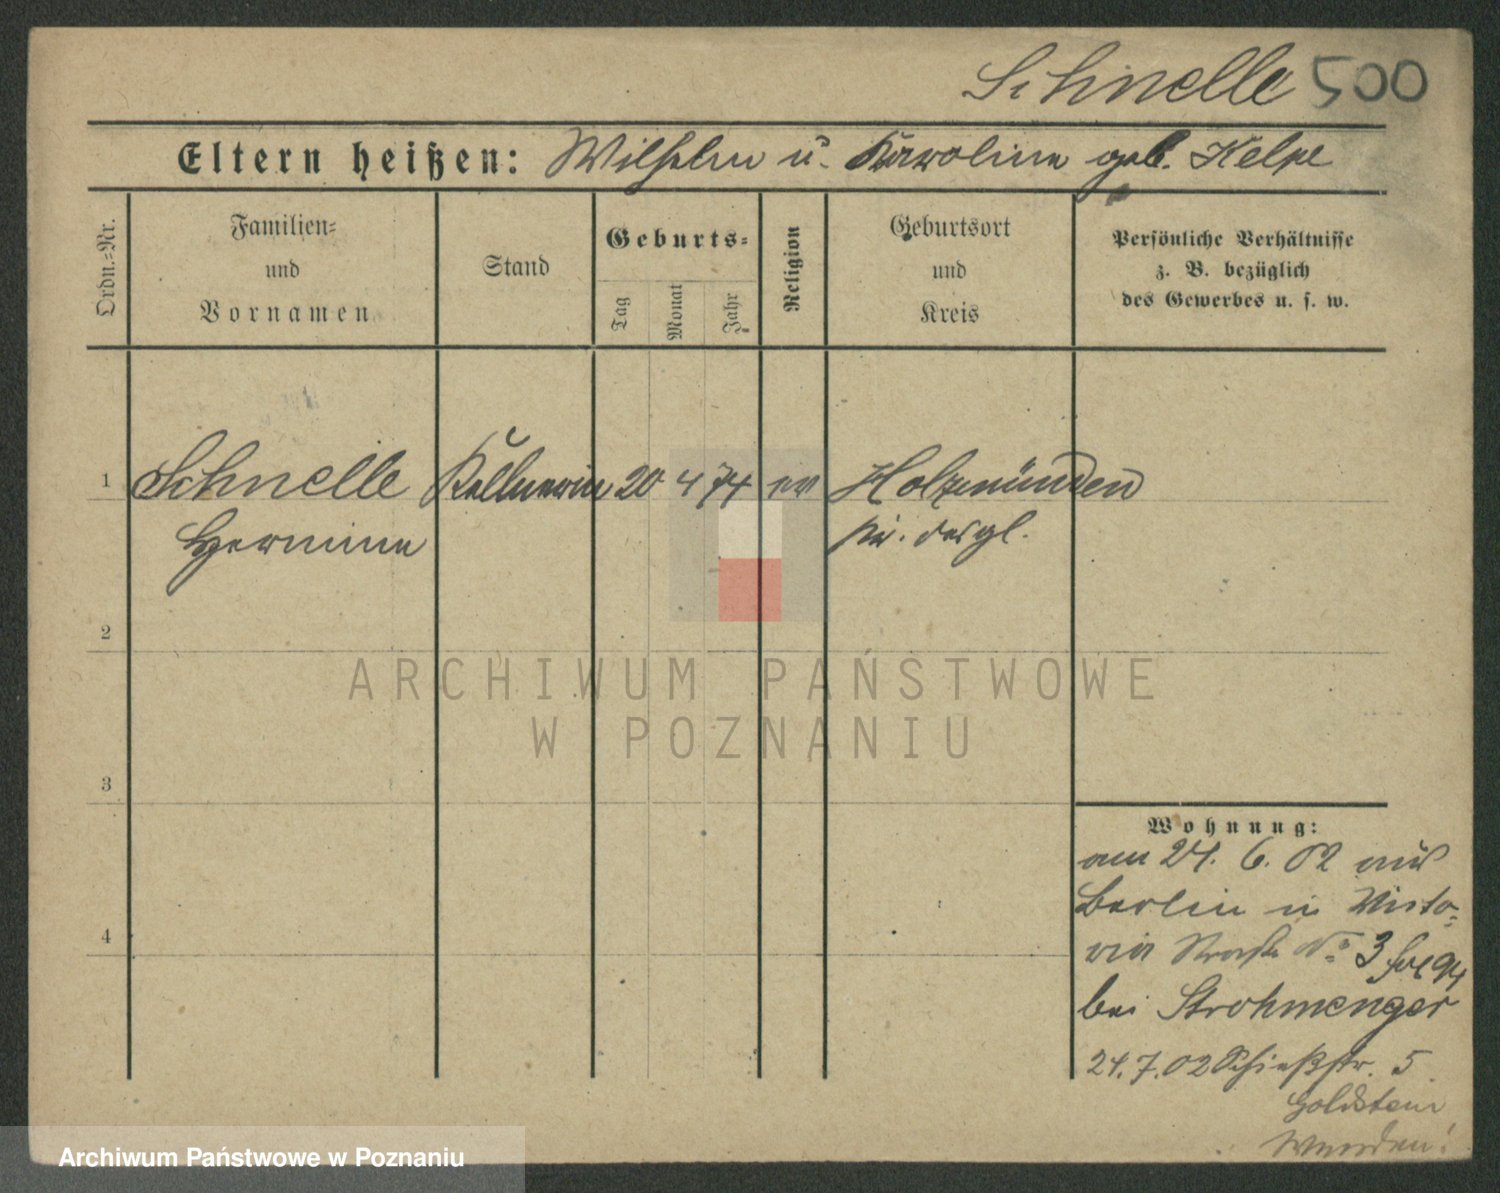 Schnelle 500
Eltern heißen: Wilhelm u. Karoline geb. Kelpe
Ordn.-Nr.
Familien-
und
Vornamen
Stand
Geburts-
Tag
Monat
Jahr
Religion
Geburtsort
und
Kreis
Persönliche Verhältnisse
z. B. bezüglich
des Gewerbes u. s. w.
1 Schnelle Kellnerin 20 4 74 ev Holzmünden
Hermine Kr. desgl.
2
3
4
Wohnung:
am 24. 6. 02 aus
Berlin in Victo-
ria Straße No 3
bei Strohmenger
24. 7. 02 Schießstr. 5
Goldstein
ARCHIWUM PAŃSTWOWE
W POZNANIU
Archiwum Państwowe w Poznaniu